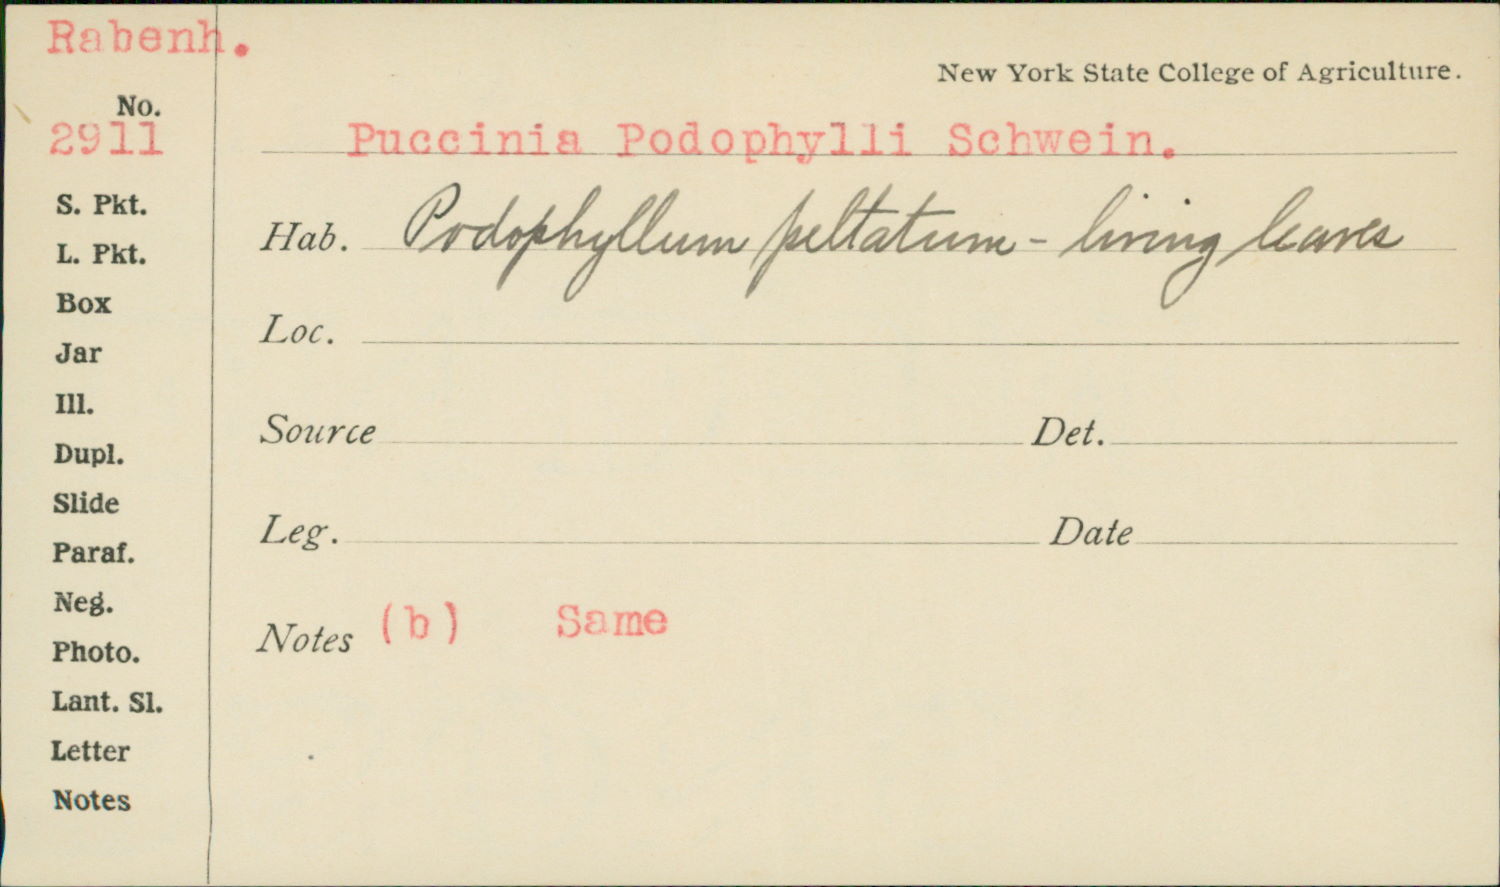 Rabenh.
New York State College of Agriculture.
No.
2911
Puccinia Podophylli Schwein.
S. Pkt.
Hab. Podophyllum peltatum - living leaves
L. Pkt.
Box
Loc.
Jar
Ill.
Source Det.
Dupl.
Slide
Leg. Date
Paraf.
Neg.
Notes (b) Same
Photo.
Lant. Sl.
Letter
Notes